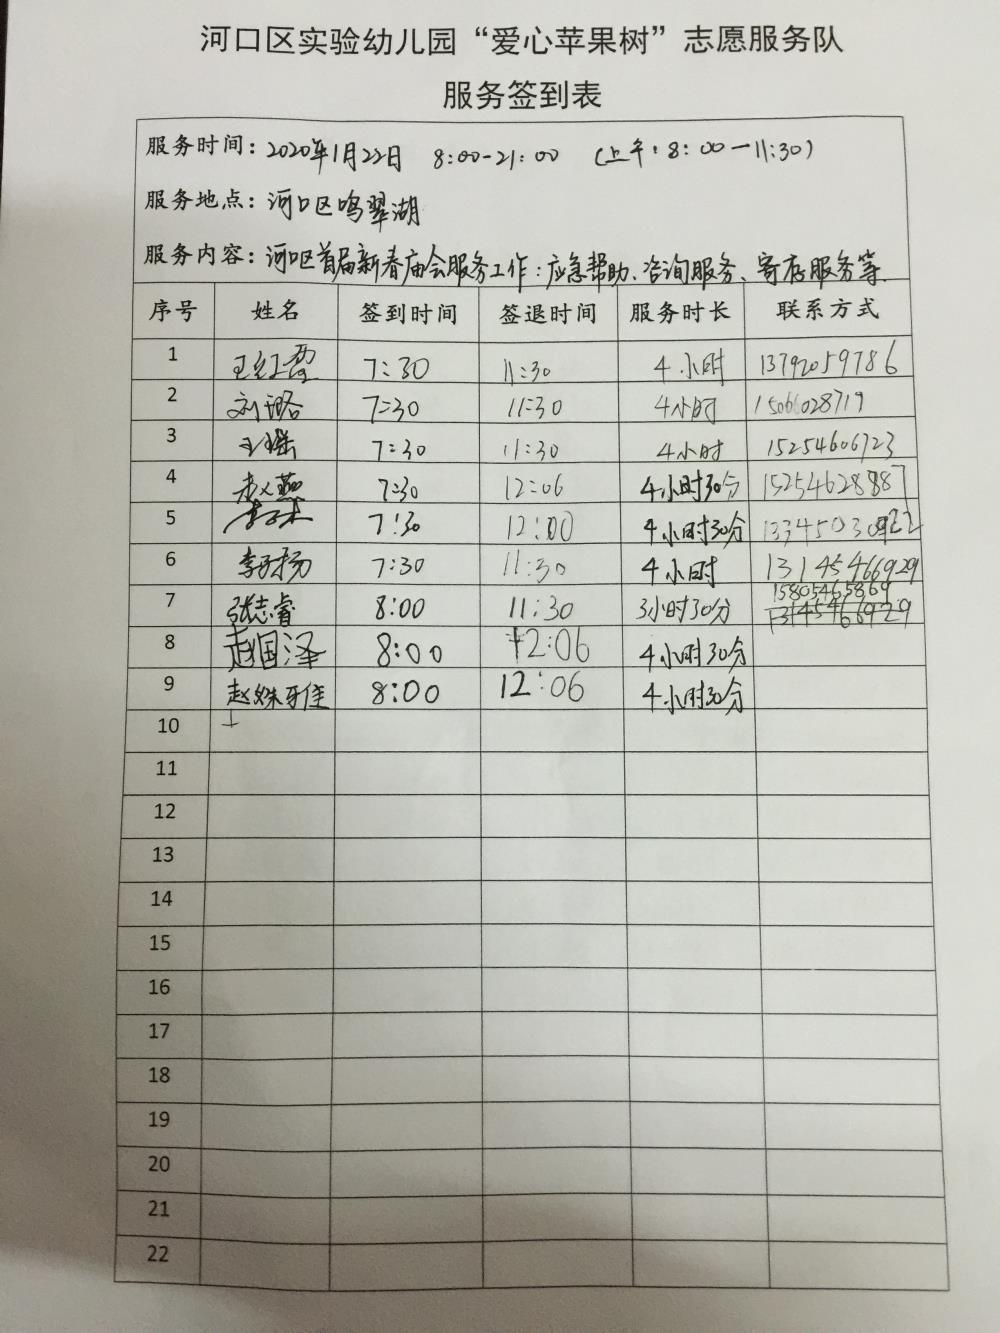 河口区实验幼儿园“爱心苹果树”志愿服务队
服务签到表
服务时间：2020年1月22日 8:00-21:00 （上午：8:00-11:30）
服务地点：河口区鸣翠湖
服务内容：河口区首届新春庙会服务工作：应急帮助、咨询服务、寄存服务等.
序号 姓名 签到时间 签退时间 服务时长 联系方式
1 王红霞 7:30 11:30 4小时 13792059786
2 刘璐 7:30 11:30 4小时 15066028719
3 王瑶 7:30 11:30 4小时 15254606723
4 赵燕 7:30 12:06 4小时30分 15254628887
5 7:30 12:00 4小时30分
6 李扬 7:30 11:30 4小时 13145466929
7 张志睿 8:00 11:30 3小时30分 15805465869
13145466929
8 赵国泽 8:00 12:06 4小时30分
9 赵姝牙佳 8:00 12:06 4小时30分
10
11
12
13
14
15
16
17
18
19
20
21
22